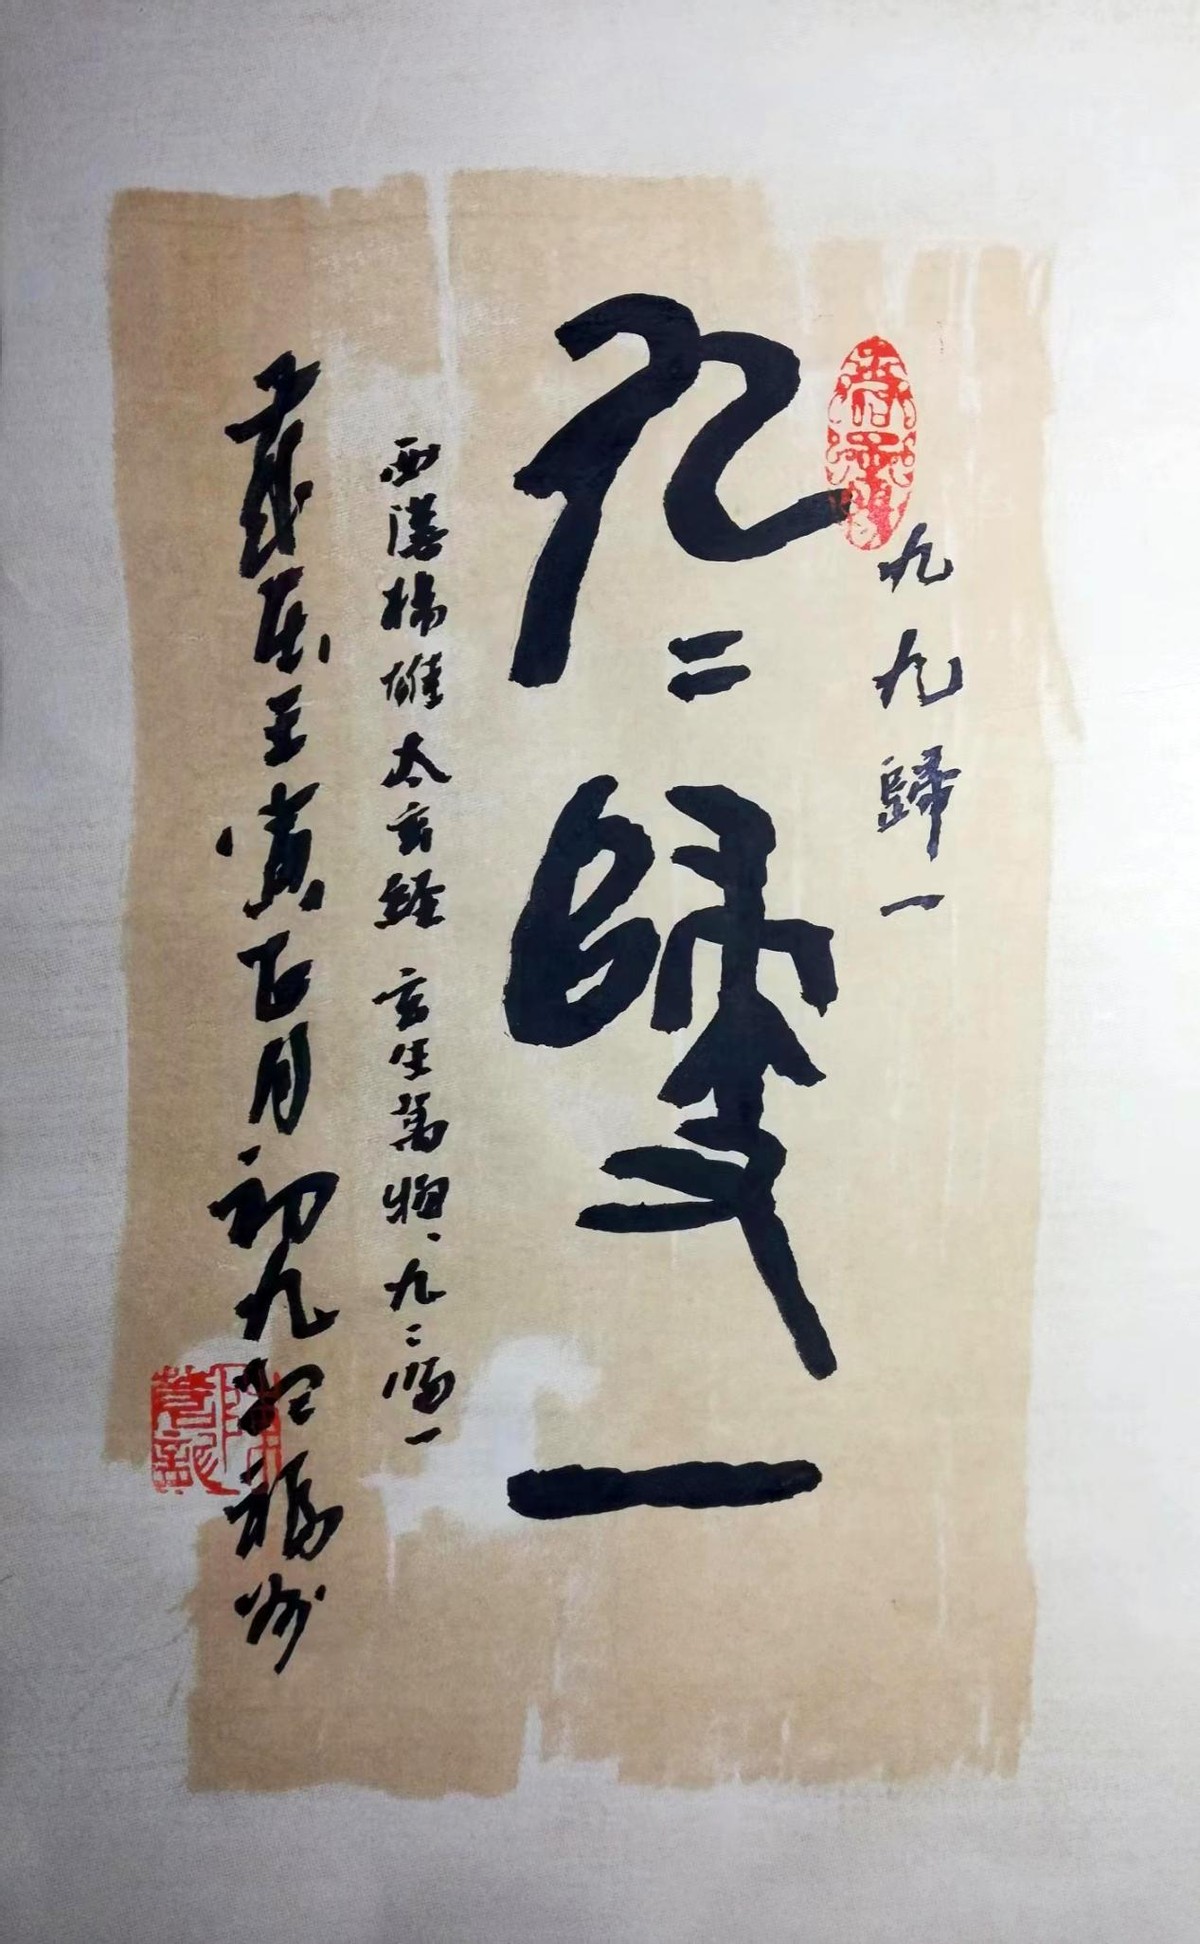 九九歸一
九二歸一
西漢楊雄太玄經 玄生萬物、九二歸一
歲在壬寅正月初九